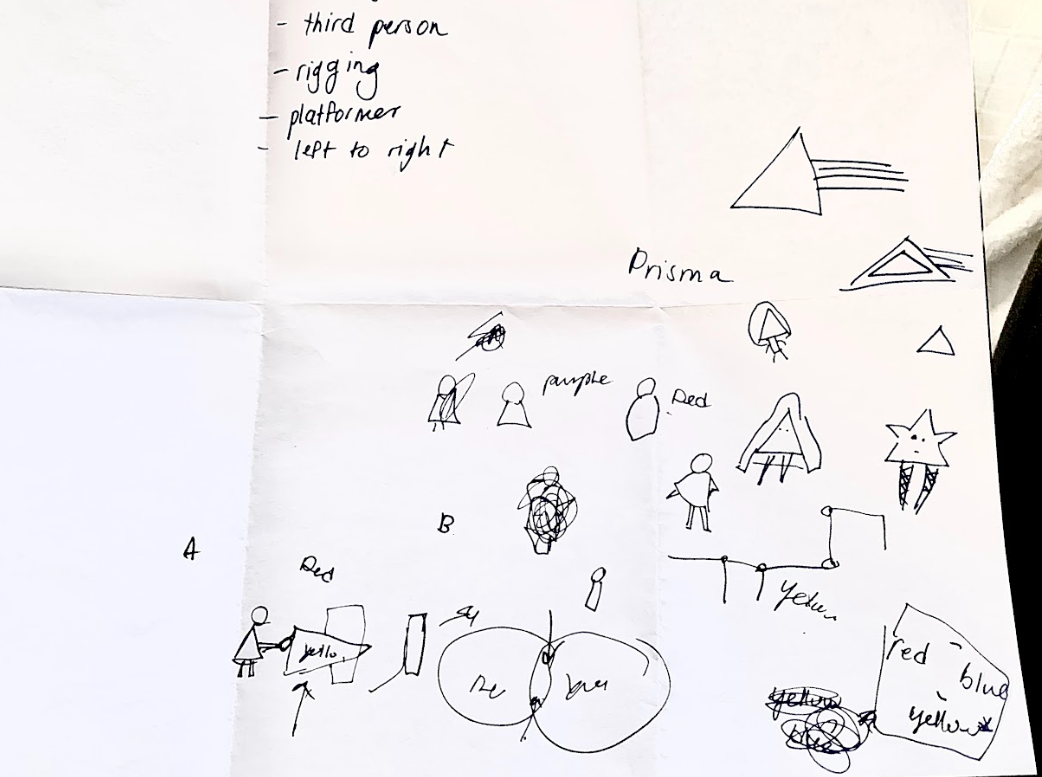 - third person
- rigging
- platformer
- left to right
Prisma
purple
Red
B
A
Red
yello
red
blue
yellow
yellow